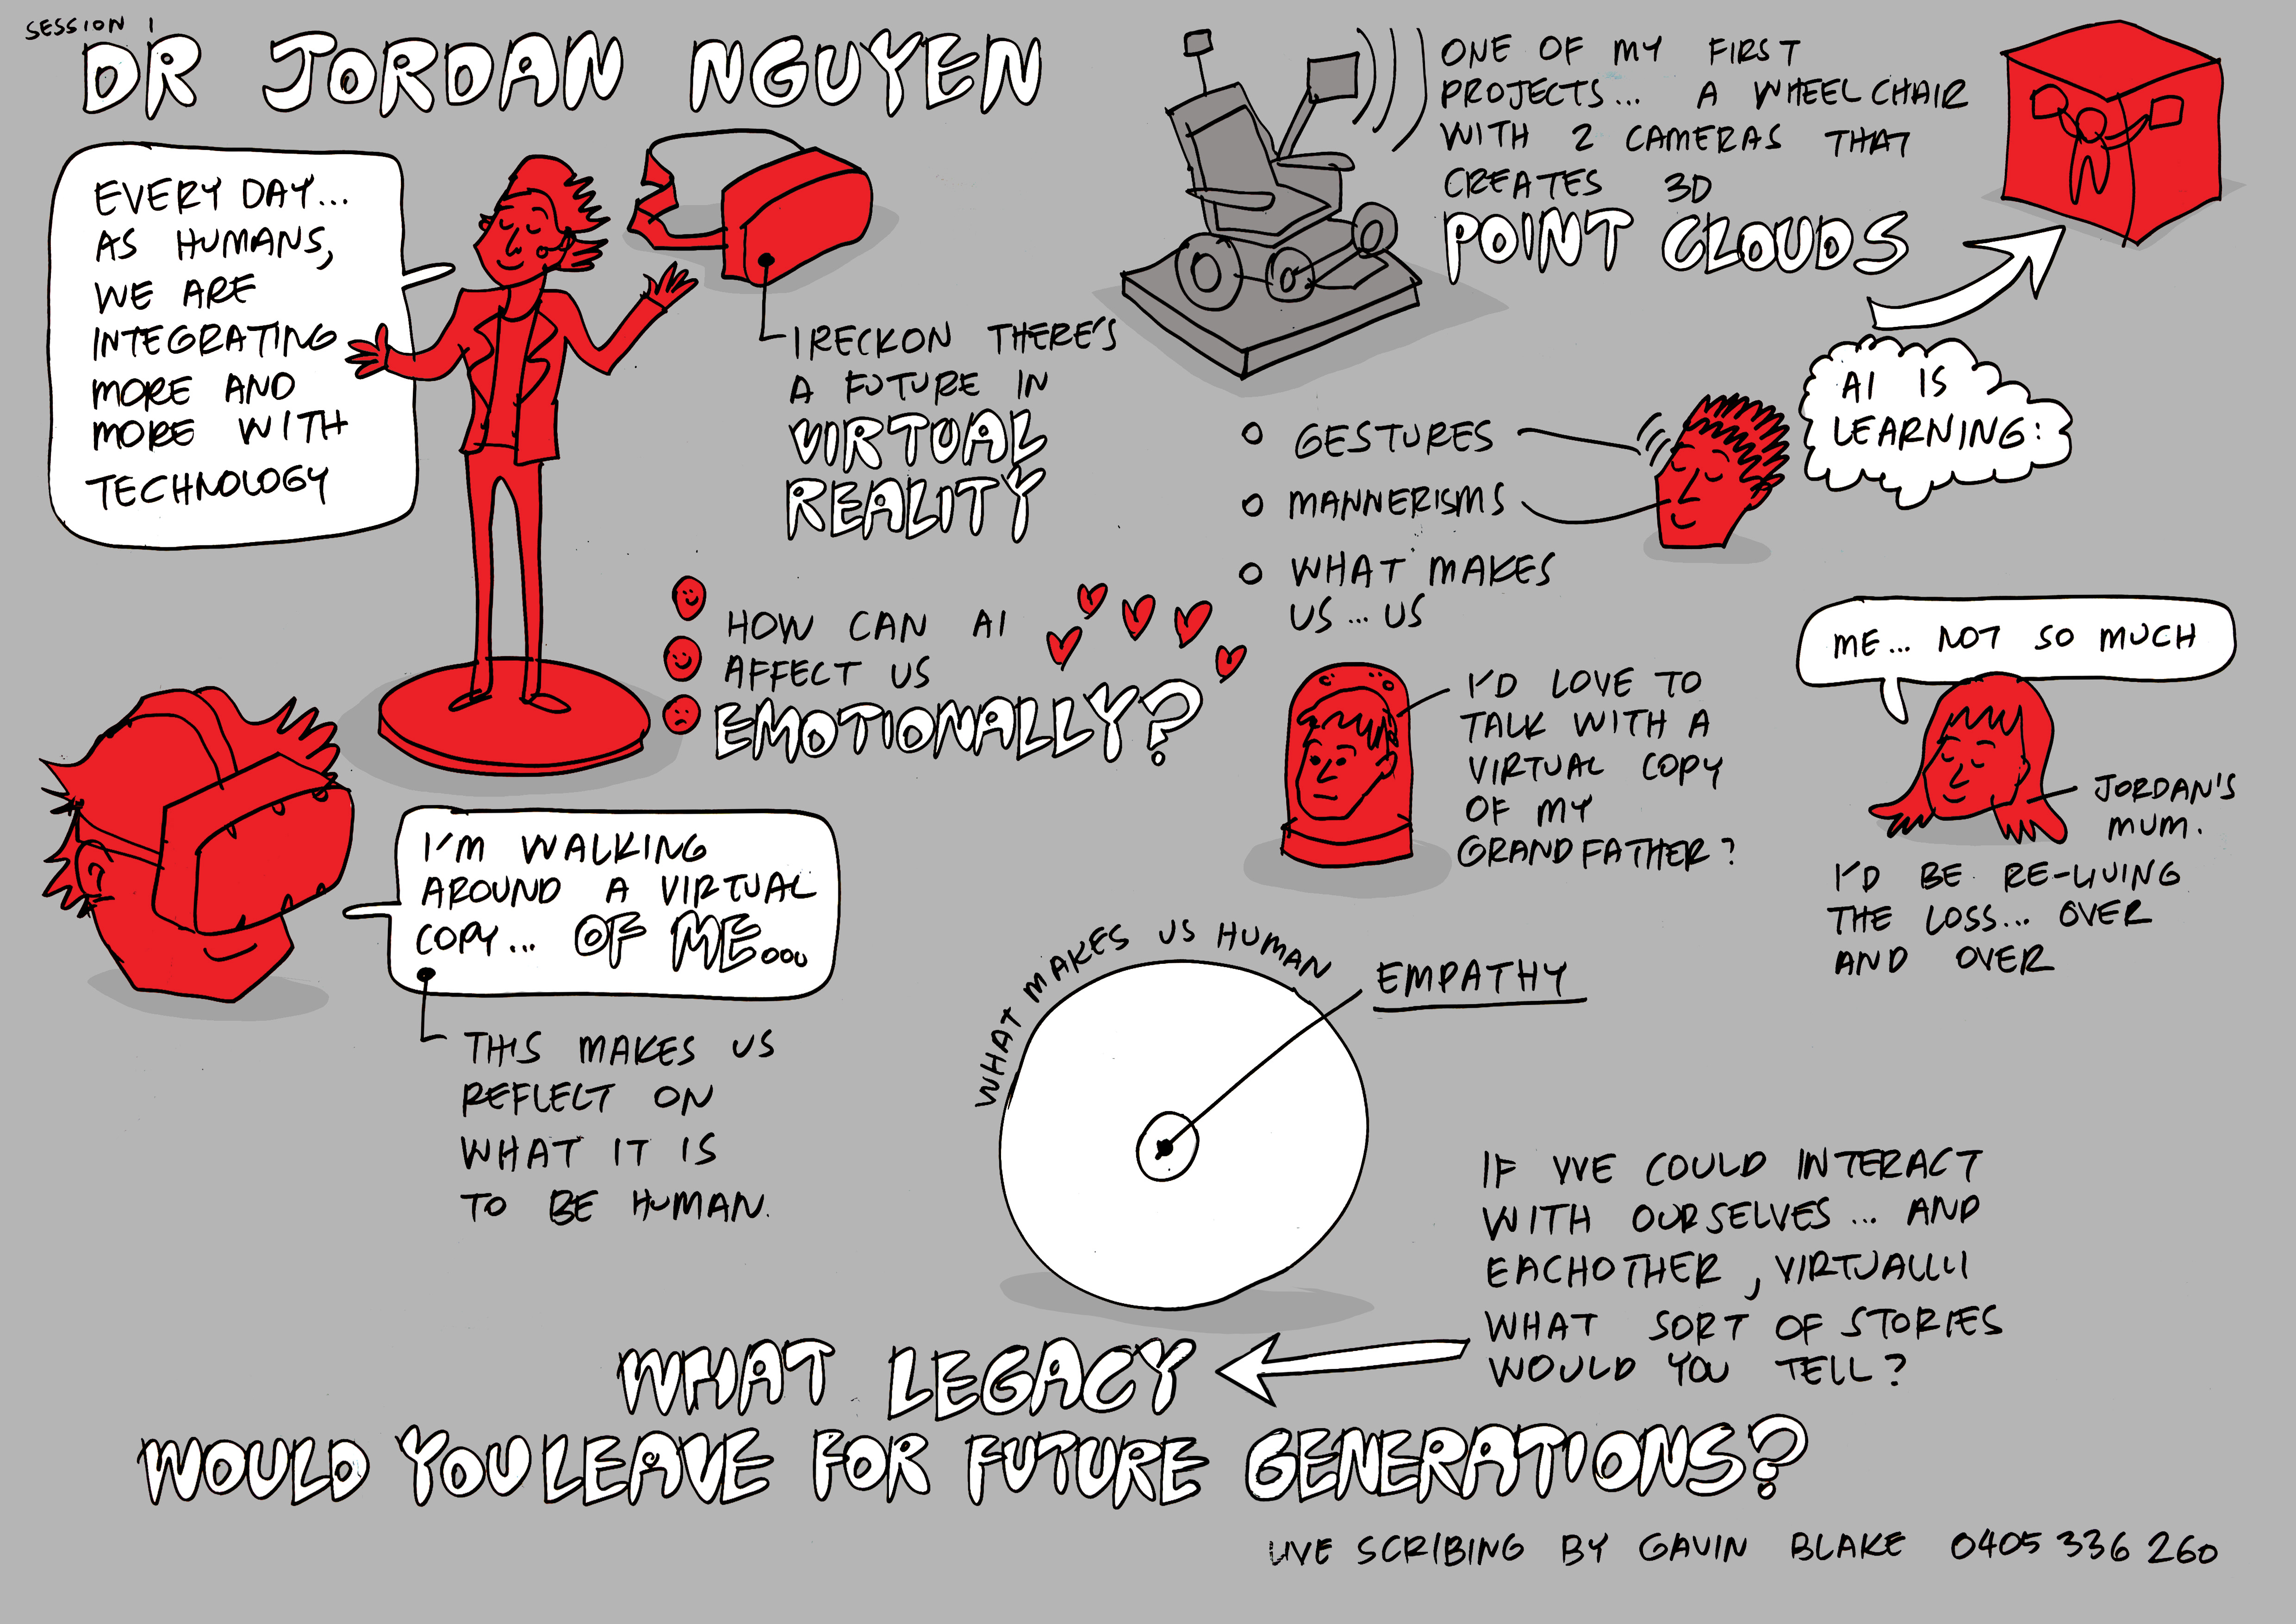 SESSION 1
DR JORDAN NGUYEN
EVERY DAY...
AS HUMANS,
WE ARE
INTEGRATING
MORE AND
MORE WITH
TECHNOLOGY
I RECKON THERE'S
A FUTURE IN
VIRTUAL
REALITY
ONE OF MY FIRST
PROJECTS... A WHEELCHAIR
WITH 2 CAMERAS THAT
CREATES 3D
POINT CLOUDS
AI IS
LEARNING:
GESTURES
MANNERISMS
WHAT MAKES
US... US
HOW CAN AI
AFFECT US
EMOTIONALLY?
I'D LOVE TO
TALK WITH A
VIRTUAL COPY
OF MY
GRANDFATHER?
ME... NOT SO MUCH
JORDAN'S
MUM.
I'D BE RE-LIVING
THE LOSS... OVER
AND OVER
I'M WALKING
AROUND A VIRTUAL
COPY... OF ME...
THIS MAKES US
REFLECT ON
WHAT IT IS
TO BE HUMAN.
WHAT MAKES US HUMAN
EMPATHY
IF WE COULD INTERACT
WITH OURSELVES... AND
EACHOTHER, VIRTUALLY
WHAT SORT OF STORIES
WOULD YOU TELL?
WHAT LEGACY
WOULD YOU LEAVE FOR FUTURE GENERATIONS?
LIVE SCRIBING BY GAVIN BLAKE 0405 336 260